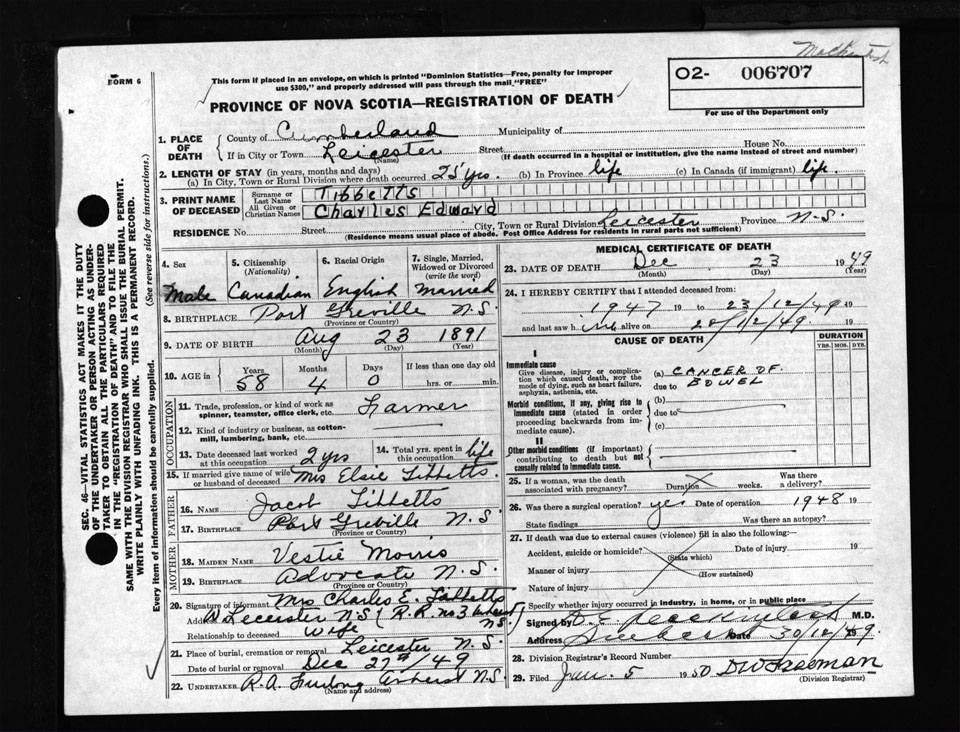 FORM 6
This form if placed in an envelope, on which is printed "Dominion Statistics—Free, penalty for improper
use $300," and properly addressed will pass through the mail, "FREE"
PROVINCE OF NOVA SCOTIA—REGISTRATION OF DEATH
O2- 006707
For use of the Department only
SEC. 46—VITAL STATISTICS ACT MAKES IT THE DUTY
OF THE UNDERTAKER OR PERSON ACTING AS UNDER-
TAKER TO OBTAIN ALL THE PARTICULARS REQUIRED
IN THE "REGISTRATION OF DEATH" AND TO FILE THE
SAME WITH THE DIVISION REGISTRAR WHO SHALL ISSUE THE BURIAL PERMIT.
WRITE PLAINLY WITH UNFADING INK. THIS IS A PERMANENT RECORD.
Every item of information should be carefully supplied. (See reverse side for instructions.)
1. PLACE OF DEATH
County of Cumberland Municipality of
If in City or Town Leicester Street House No.
(Name) (If death occurred in a hospital or institution, give the name instead of street and number)
2. LENGTH OF STAY (in years, months and days)
(a) In City, Town or Rural Division where death occurred 25 yrs. (b) In Province life (c) In Canada (if immigrant) life.
3. PRINT NAME OF DECEASED
Surname or Last Name Tibbetts
All Given or Christian Names Charles Edward
RESIDENCE No. Street City, Town or Rural Division Leicester Province N.S.
(Residence means usual place of abode. Post Office Address for residents in rural parts not sufficient)
4. Sex
5. Citizenship (Nationality)
6. Racial Origin
7. Single, Married, Widowed or Divorced (write the word)
Male Canadian English Married
8. BIRTHPLACE Port Greville N.S.
(Province or Country)
9. DATE OF BIRTH Aug 23 1891
(Month) (Day) (Year)
10. AGE in Years Months Days If less than one day old
58 4 0 hrs. or min.
OCCUPATION
11. Trade, profession, or kind of work as spinner, teamster, office clerk, etc. Farmer
12. Kind of industry or business, as cotton-mill, lumbering, bank, etc.
13. Date deceased last worked at this occupation 2 yrs
14. Total yrs. spent in this occupation life
15. If married give name of wife or husband of deceased Mrs Elsie Tibbetts
FATHER
16. NAME Jacob Tibbetts
17. BIRTHPLACE Port Greville N.S.
(Province or Country)
MOTHER
18. MAIDEN NAME Vestie Morris
19. BIRTHPLACE Advocate N.S.
(Province or Country)
20. Signature of informant Mrs Charles E. Tibbetts
Address Leicester N.S. (R.R. no 3 Amherst N.S.
Relationship to deceased wife
21. Place of burial, cremation or removal Leicester N.S.
Date of burial or removal Dec 27th/49
22. UNDERTAKER R.A. Furlong Amherst N.S.
(Name and address)
MEDICAL CERTIFICATE OF DEATH
23. DATE OF DEATH Dec 23 1949
(Month) (Day) (Year)
24. I HEREBY CERTIFY that I attended deceased from:
1947 19 to 23/12/49 19
and last saw h im alive on 20/12/49. 19
CAUSE OF DEATH
DURATION
YRS. MOS. DYS.
I
Immediate cause
Give disease, injury or complication which caused death, NOT the mode of dying, such as heart failure, asphyxia, asthenia, etc.
(a) CANCER OF
due to BOWEL
Morbid conditions, if any, giving rise to immediate cause (stated in order proceeding backwards from immediate cause).
(b)
due to
(c)
II
Other morbid conditions (if important) contributing to death but not causally related to immediate cause.
25. If a woman, was the death associated with pregnancy? Duration weeks. Was there a delivery?
26. Was there a surgical operation? yes Date of operation 1948 19
State findings Was there an autopsy?
27. If death was due to external causes (violence) fill in also the following:—
Accident, suicide or homicide? Date of injury 19
(State which)
Manner of injury
(How sustained)
Nature of injury
Specify whether injury occurred in industry, in home, or in public place
Signed by M.D.
Address Amherst Date 30/12/49.
28. Division Registrar's Record Number
29. Filed Jan. 5 1950 DW Freeman
(Division Registrar)